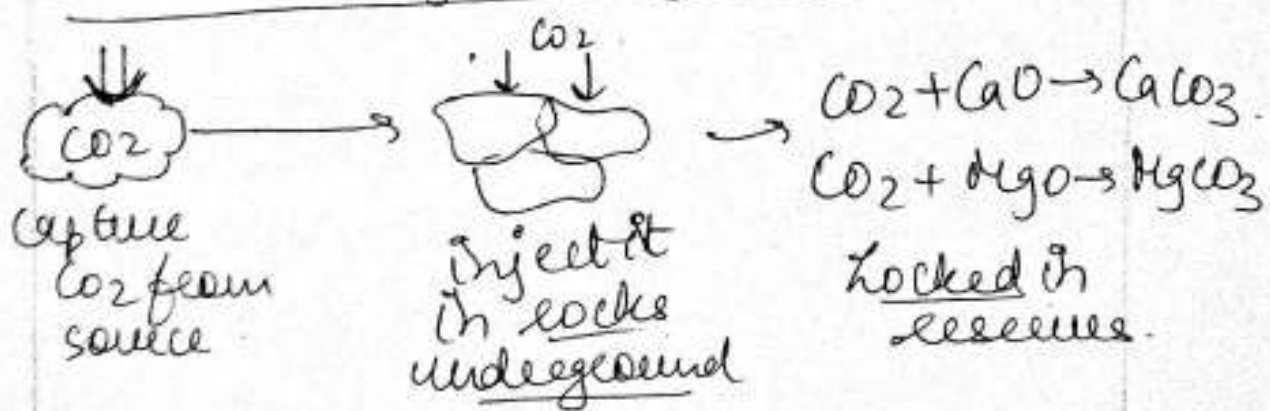 CO2
CO2
capture
CO2 from
source
inject it
in rocks
underground
CO2 + CaO → CaCO3.
CO2 + MgO → MgCO3
Locked in
reserves.